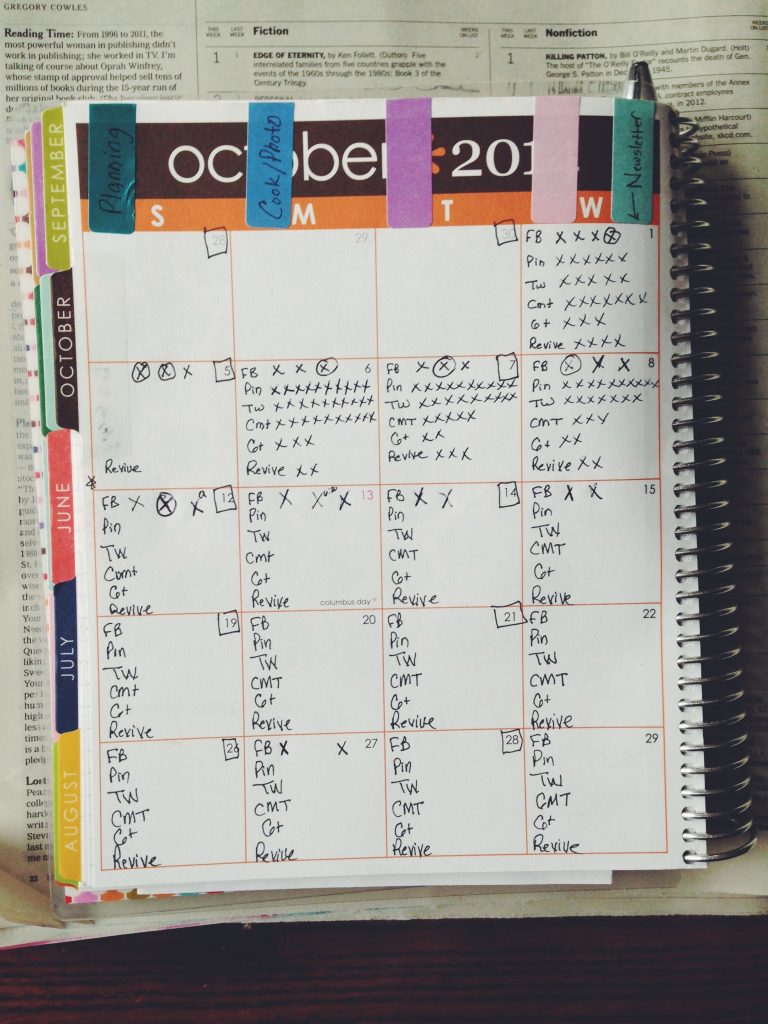 GREGORY COWLES
Reading Time: From 1996 to 2011, the
most powerful woman in publishing didn't
work in publishing; she worked in TV. I'm
talking of course about Oprah Winfrey,
whose stamp of approval helped sell tens
of millions of books during the 15-year run of
her original book club.
THIS WEEK
LAST WEEK
Fiction
WEEKS ON LIST
1
EDGE OF ETERNITY, by Ken Follett. (Dutton) Five
interrelated families from five countries grapple with the
events of the 1960s through the 1980s; Book 3 of the
Century Trilogy.
THIS WEEK
LAST WEEK
Nonfiction
WEEKS ON LIST
1
KILLING PATTON, by Bill O'Reilly and Martin Dugard. (Holt)
The host of "The O'Reilly recounts the death of Gen.
George S. Patton in 1945.
with members of the Annex
contract employees
in 2012.
Mifflin Harcourt)
hypothetical
website, xkcd.com.
Press)
Planning
Cook/Photo
← Newsletter
october * 201
S M T W
SEPTEMBER
OCTOBER
JUNE
JULY
AUGUST
28
29
30
1
FB X X X X
Pin X X X X X X
TW X X X X X
Cmt X X X X X X X
G+ X X X
Revive X X X X
5
X X X
Revive
6
FB X X X
Pin X X X X X X X X X X
TW X X X X X X X X X X
Cmt X X X X X X X X X X
G+ X X X
Revive X X
7
FB X X X
Pin X X X X X X X X X X
TW X X X X X X X X X
CMT X X X X X
G+ X X
Revive X X X
8
FB X X X
Pin X X X X X X X X X X
TW X X X X X X X
CMT X X X
G+ X X
Revive X X
*
12
FB X X X a
Pin
TW
Comt
G+
Revive
13
FB X X X
Pin
TW
Cmt
G+
Revive
columbus day
14
FB X X
Pin
TW
CMT
G+
Revive
15
FB X X
Pin
TW
CMT
G+
Revive
19
FB
Pin
TW
Cmt
G+
Revive
20
FB
Pin
TW
CMT
G+
Revive
21
FB
Pin
TW
CMT
G+
Revive
22
FB
Pin
TW
CMT
G+
Revive
26
FB
Pin
TW
CMT
G+
Revive
27
FB X X
Pin
TW
CMT
G+
Revive
28
FB
Pin
TW
CMT
G+
Revive
29
FB
Pin
TW
CMT
G+
Revive
Lost
22